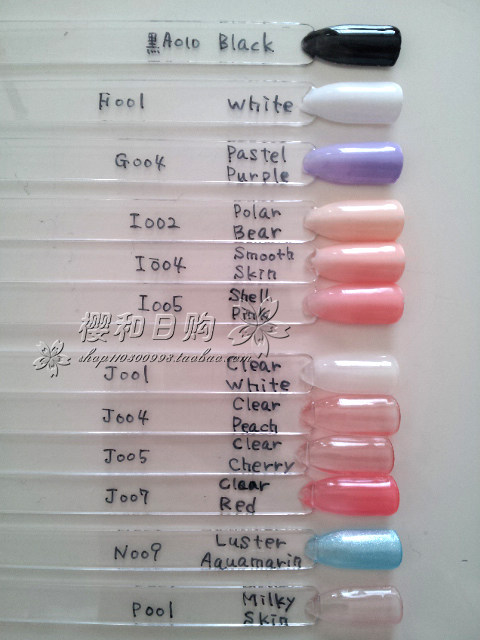 黒A010 Black
F001 White
G004 Pastel
Purple
I002 Polar
Bear
I004 Smooth
Skin
I005 Shell
Pink
樱和日购
shop110300998.taobao.com
J001 Clear
White
J004 Clear
Peach
J005 Clear
Cherry
J007 Clear
Red
N009 Luster
Aquamarin
P001 Milky
Skin